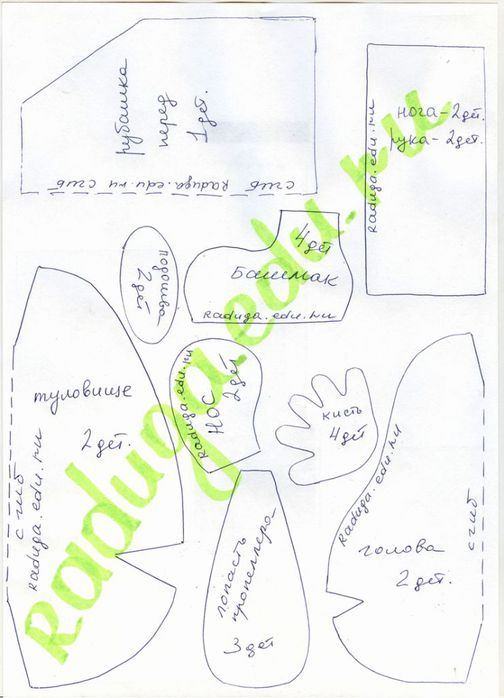 рубашка
перед
1дет.
сгиб Raduga.edu.ru сгиб
нога-2дет.
рука-2дет.
Raduga.edu.ru
подошва
2дет
4дет
Башмак
Raduga.edu.ru
туловище
2дет.
сгиб
Raduga.edu.ru
НОС
2дет
Raduga.edu.ru
кисть
4дет
лопасть
пропеллера
3дет
Raduga.edu.ru
голова
2дет.
сгиб
Raduga.edu.ru